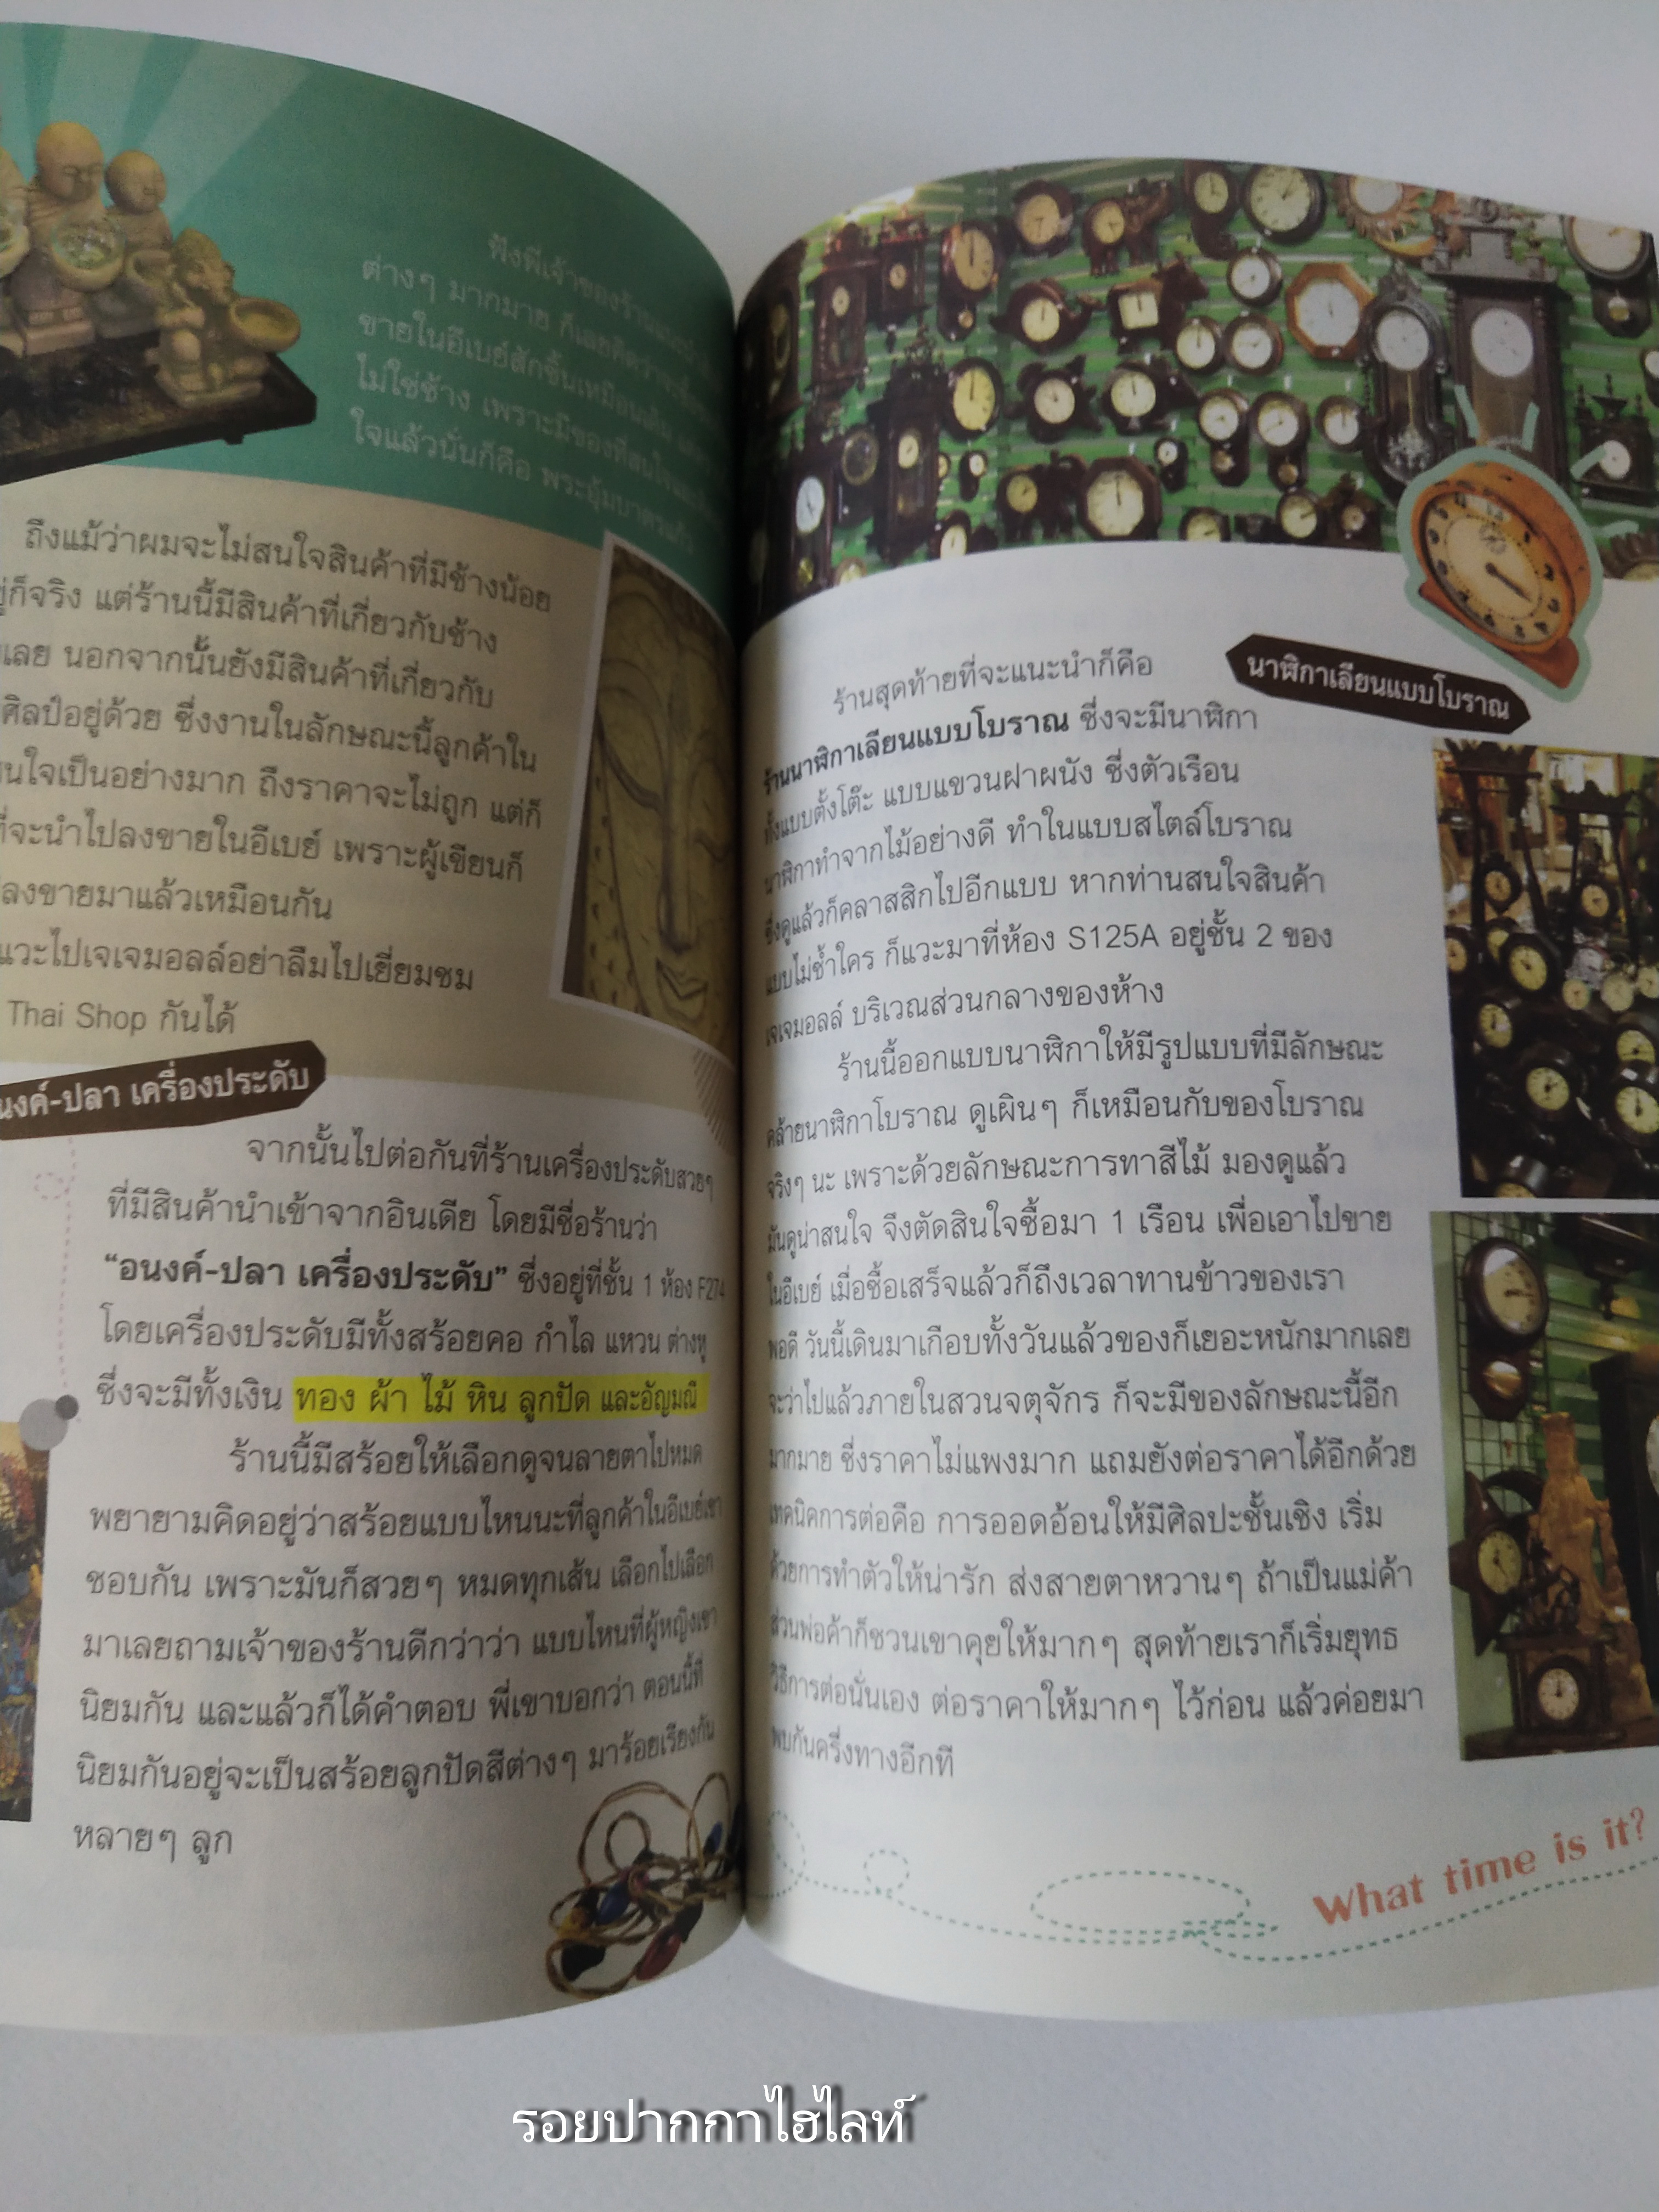 ฟังพี่เจ้าของร้าน
ต่างๆ มากมาย ก็เลยคิดว่าจะซื้อ
ขายในอีเบย์สักชิ้นเหมือนเดิม
ไม่ใช่ช้าง เพราะมีของที่สนใจ
ใจแล้วนั่นก็คือ พระอุ้มบาตรแก้ว
ถึงแม้ว่าผมจะไม่สนใจสินค้าที่มีช้างน้อย
ก็จริง แต่ร้านนี้มีสินค้าที่เกี่ยวกับช้าง
เลย นอกจากนั้นยังมีสินค้าที่เกี่ยวกับ
ศิลป์อยู่ด้วย ซึ่งงานในลักษณะนี้ลูกค้าใน
นใจเป็นอย่างมาก ถึงราคาจะไม่ถูก แต่ก็
ที่จะนำไปลงขายในอีเบย์ เพราะผู้เขียนก็
ลงขายมาแล้วเหมือนกัน
แวะไปเจเจมอลล์อย่าลืมไปเยี่ยมชม
Thai Shop กันได้
นงค์-ปลา เครื่องประดับ
จากนั้นไปต่อกันที่ร้านเครื่องประดับสวยๆ
ที่มีสินค้านำเข้าจากอินเดีย โดยมีชื่อร้านว่า
“อนงค์-ปลา เครื่องประดับ” ซึ่งอยู่ที่ชั้น 1 ห้อง F274
โดยเครื่องประดับมีทั้งสร้อยคอ กำไล แหวน ต่างหู
ซึ่งจะมีทั้งเงิน ทอง ผ้า ไม้ หิน ลูกปัด และอัญมณี
ร้านนี้มีสร้อยให้เลือกดูจนลายตาไปหมด
พยายามคิดอยู่ว่าสร้อยแบบไหนนะที่ลูกค้าในอีเบย์เขา
ชอบกัน เพราะมันก็สวยๆ หมดทุกเส้น เลือกไปเลือก
มาเลยถามเจ้าของร้านดีกว่าว่า แบบไหนที่ผู้หญิงเขา
นิยมกัน และแล้วก็ได้คำตอบ พี่เขาบอกว่า ตอนนี้ที่
นิยมกันอยู่จะเป็นสร้อยลูกปัดสีต่างๆ มาร้อยเรียงกัน
หลายๆ ลูก
นาฬิกาเลียนแบบโบราณ
ร้านสุดท้ายที่จะแนะนำก็คือ
ร้านนาฬิกาเลียนแบบโบราณ ซึ่งจะมีนาฬิกา
ทั้งแบบตั้งโต๊ะ แบบแขวนฝาผนัง ซึ่งตัวเรือน
นาฬิกาทำจากไม้อย่างดี ทำในแบบสไตล์โบราณ
ซึ่งดูแล้วก็คลาสสิกไปอีกแบบ หากท่านสนใจสินค้า
แบบไม่ซ้ำใคร ก็แวะมาที่ห้อง S125A อยู่ชั้น 2 ของ
เจเจมอลล์ บริเวณส่วนกลางของห้าง
ร้านนี้ออกแบบนาฬิกาให้มีรูปแบบที่มีลักษณะ
คล้ายนาฬิกาโบราณ ดูเผินๆ ก็เหมือนกับของโบราณ
จริงๆ นะ เพราะด้วยลักษณะการทาสีไม้ มองดูแล้ว
มันดูน่าสนใจ จึงตัดสินใจซื้อมา 1 เรือน เพื่อเอาไปขาย
ในอีเบย์ เมื่อซื้อเสร็จแล้วก็ถึงเวลาทานข้าวของเรา
พอดี วันนี้เดินมาเกือบทั้งวันแล้วของก็เยอะหนักมากเลย
จะว่าไปแล้วภายในสวนจตุจักร ก็จะมีของลักษณะนี้อีก
มากมาย ซึ่งราคาไม่แพงมาก แถมยังต่อราคาได้อีกด้วย
เทคนิคการต่อคือ การออดอ้อนให้มีศิลปะชั้นเชิง เริ่ม
ด้วยการทำตัวให้น่ารัก ส่งสายตาหวานๆ ถ้าเป็นแม่ค้า
ส่วนพ่อค้าก็ชวนเขาคุยให้มากๆ สุดท้ายเราก็เริ่มยุทธ
วิธีการต่อนั่นเอง ต่อราคาให้มากๆ ไว้ก่อน แล้วค่อยมา
พบกันครึ่งทางอีกที
What time is it?
รอยปากกาไฮไลท์